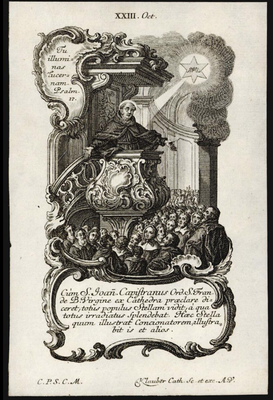 XXIII. Oct.
Tu
illumi-
nas
Lucer-
nam.
Psalm.
17.
Cùm S. Joañ. Capistranus Ord. S. Fran.
de B. Virgine ex Cathedra præclare di-
ceret, totus populus Stellam vidit, à qua
totus irradiatus Splendebat. Hæc Stella
quum illustrat Concionatorem, illustra,
bit is et alios.
C. P. S. C. M.
Klauber Cath. Sc. et exc. A.V.